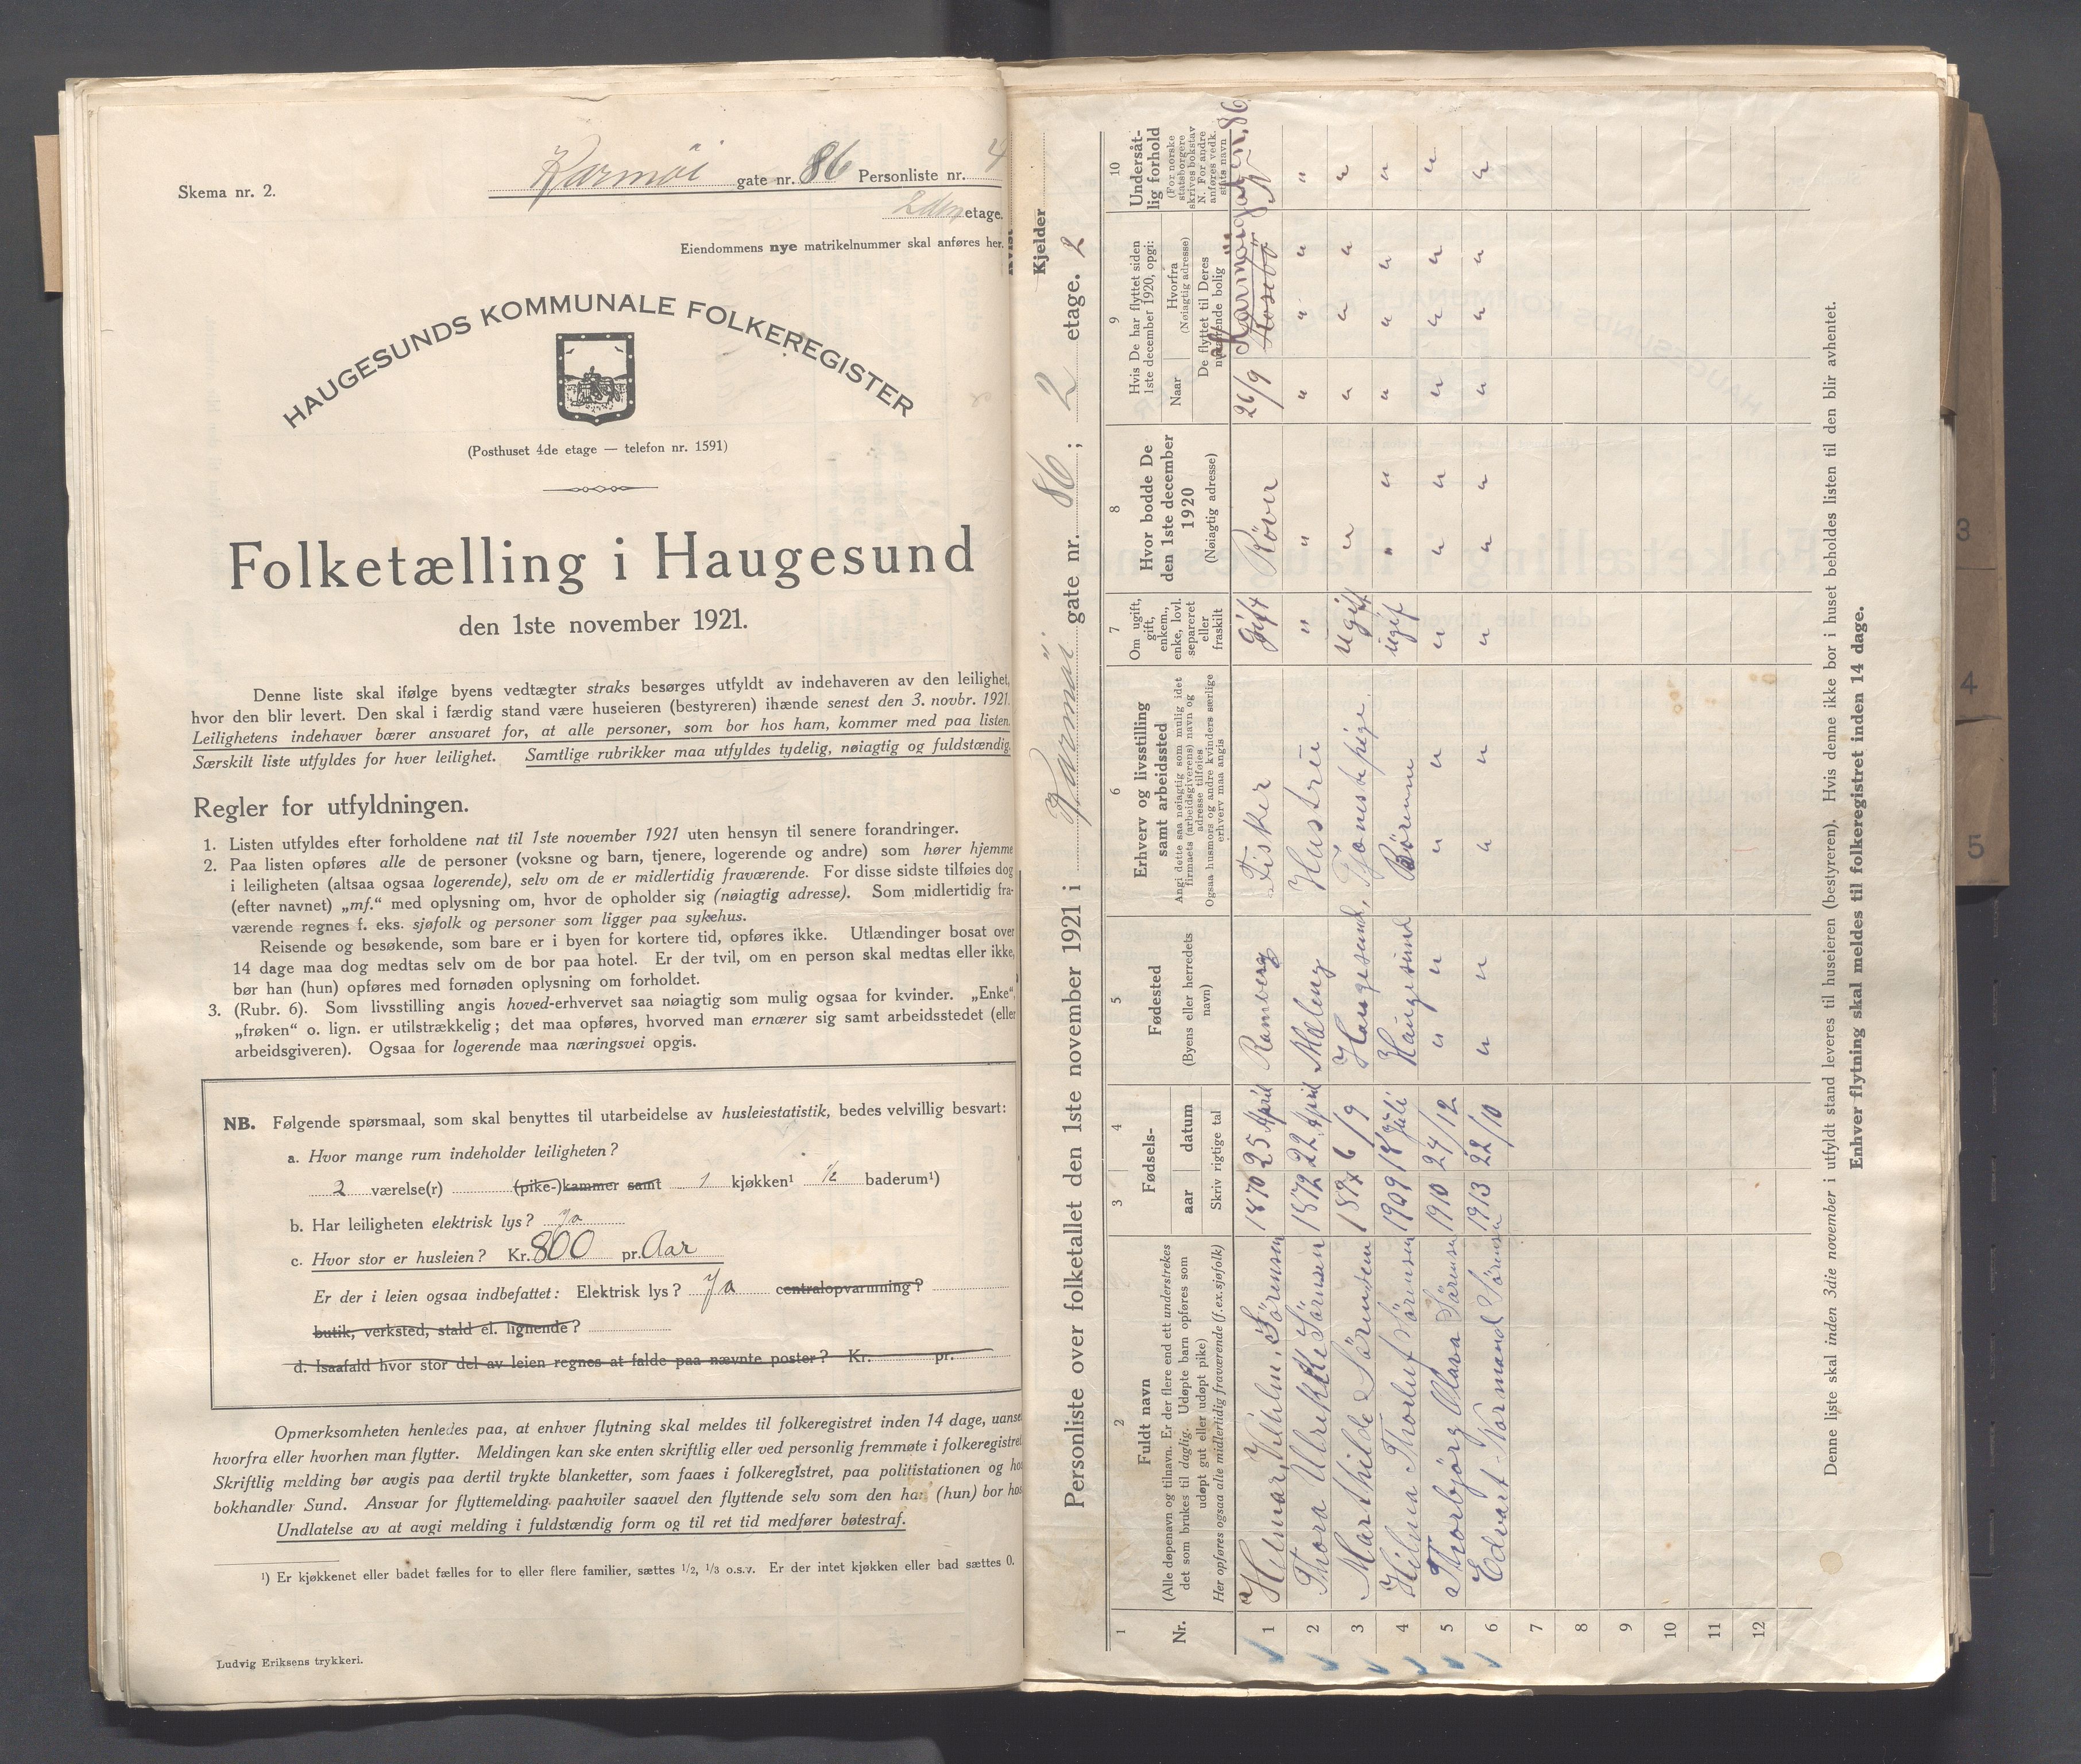 Skema nr. 2.
Karmöi gate nr. 86 Personliste nr. 4
2den etage.
Eiendommens nye matrikelnummer skal anføres her.
HAUGESUNDS KOMMUNALE FOLKEREGISTER
(Posthuset 4de etage — telefon nr. 1591)
Folketælling i Haugesund
den 1ste november 1921.
Denne liste skal ifølge byens vedtægter straks besørges utfyldt av indehaveren av den leilighet,
hvor den blir levert. Den skal i færdig stand være huseieren (bestyreren) ihænde senest den 3. novbr. 1921.
Leilighetens indehaver bærer ansvaret for, at alle personer, som bor hos ham, kommer med paa listen.
Særskilt liste utfyldes for hver leilighet. Samtlige rubrikker maa utfyldes tydelig, nøiagtig og fuldstændig.
Regler for utfyldningen.
1. Listen utfyldes efter forholdene nat til 1ste november 1921 uten hensyn til senere forandringer.
2. Paa listen opføres alle de personer (voksne og barn, tjenere, logerende og andre) som hører hjemme
i leiligheten (altsaa ogsaa logerende), selv om de er midlertidig fraværende. For disse sidste tilføies dog
(efter navnet) „mf.“ med oplysning om, hvor de opholder sig (nøiagtig adresse). Som midlertidig fra-
værende regnes f. eks. sjøfolk og personer som ligger paa sykehus.
Reisende og besøkende, som bare er i byen for kortere tid, opføres ikke. Utlændinger bosat over
14 dage maa dog medtas selv om de bor paa hotel. Er der tvil, om en person skal medtas eller ikke,
bør han (hun) opføres med fornøden oplysning om forholdet.
3. (Rubr. 6). Som livsstilling angis hoved-erhvervet saa nøiagtig som mulig ogsaa for kvinder. „Enke“,
„frøken“ o. lign. er utilstrækkelig; det maa opføres, hvorved man ernærer sig samt arbeidsstedet (eller
arbeidsgiveren). Ogsaa for logerende maa næringsvei opgis.
NB. Følgende spørsmaal, som skal benyttes til utarbeidelse av husleiestatistik, bedes velvillig besvart:
a. Hvor mange rum indeholder leiligheten?
2 værelse(r) (pike-)kammer samt 1 kjøkken¹ ½ baderum¹)
b. Har leiligheten elektrisk lys? Ja
c. Hvor stor er husleien? Kr. 800 pr. Aar
Er der i leien ogsaa indbefattet: Elektrisk lys? Ja centralopvarmning?
butik, verksted, stald el. lignende?
d. Isaafald hvor stor del av leien regnes at falde paa nævnte poster? Kr. pr.
Opmerksomheten henledes paa, at enhver flytning skal meldes til folkeregistret inden 14 dage, uanse
hvorfra eller hvorhen man flytter. Meldingen kan ske enten skriftlig eller ved personlig fremmøte i folkeregistret
Skriftlig melding bør avgis paa dertil trykte blanketter, som faaes i folkeregistret, paa politistationen og hos
bokhandler Sund. Ansvar for flyttemelding paahviler saavel den flyttende selv som den han (hun) bor hos
Undlatelse av at avgi melding i fuldstændig form og til ret tid medfører bøtestraf.
¹) Er kjøkkenet eller badet fælles for to eller flere familier, sættes 1/2, 1/3 o.s.v. Er der intet kjøkken eller bad sættes 0.
Ludvig Eriksens trykkeri.
Kvist
Kjelder
Personliste over folketallet den 1ste november 1921 i Karmöi gate nr. 86; 2 etage. 2
1 2 3 4 5 6 7 8 9 10
Nr.
Fuldt navn
(Alle døpenavn og tilnavn. Er der flere end ett understrekes
det som brukes til daglig. Udøpte barn opføres som
udøpt gut eller udøpt pike)
Her opføres ogsaa alle midlertidig fraværende (f.ex.sjøfolk)
Fødsels-
aar datum
Skriv rigtige tal
Fødested
(Byens eller herredets
navn)
Erhverv og livsstilling
samt arbeidssted
Angi dette saa nøiagtig som mulig idet
firmaets (arbeidsgiverens) navn og
adresse tilføies
Ogsaa husmors og andre kvinders særlige
erhverv maa angis
Om ugift,
gift,
enkem.,
enke, lovl.
separeret
eller
fraskilt
Hvor bodde De
den 1ste december
1920
(Nøiagtig adresse)
Hvis De har flyttet siden
1ste december 1920, opgi:
Naar
Hvorfra
(Nøiagtig adresse)
De flyttet til Deres
nuværende bolig
Undersåt-
lig forhold
(For norske
statsborgere
skrives bokstav
N. For andre
anføres vedk.
stats navn
af Karmöigaten 86
1 Hilmar, Vilhelm, Sörensen 1870 25 April Ramberg Fisker Gift Röver 26/9 N
2 Thora Ulrikke Sörensen 1872 22 April Mæleng Hustrü " " " " "
3 Marthilde Sörensen 6/9 Haugesund, Tjenestepige. ugift " " " " "
4 Hilma Thoralf Sörensen 1909 18 Juli Haugesund Börenne ugif " " " " " "
5 Thorbjörg Mara Sörensen 1910 24/12 " " " " " " " " " " "
6 Edvart Normand Sörensen 1913 22/10 " " " " " " " " " " "
7
8
9
10
11
12
Denne liste skal inden 3die november i utfyldt stand leveres til huseieren (bestyreren). Hvis denne ikke bor i huset beholdes listen til den blir avhentet.
Enhver flytning skal meldes til folkeregistret inden 14 dage.
3
4
5